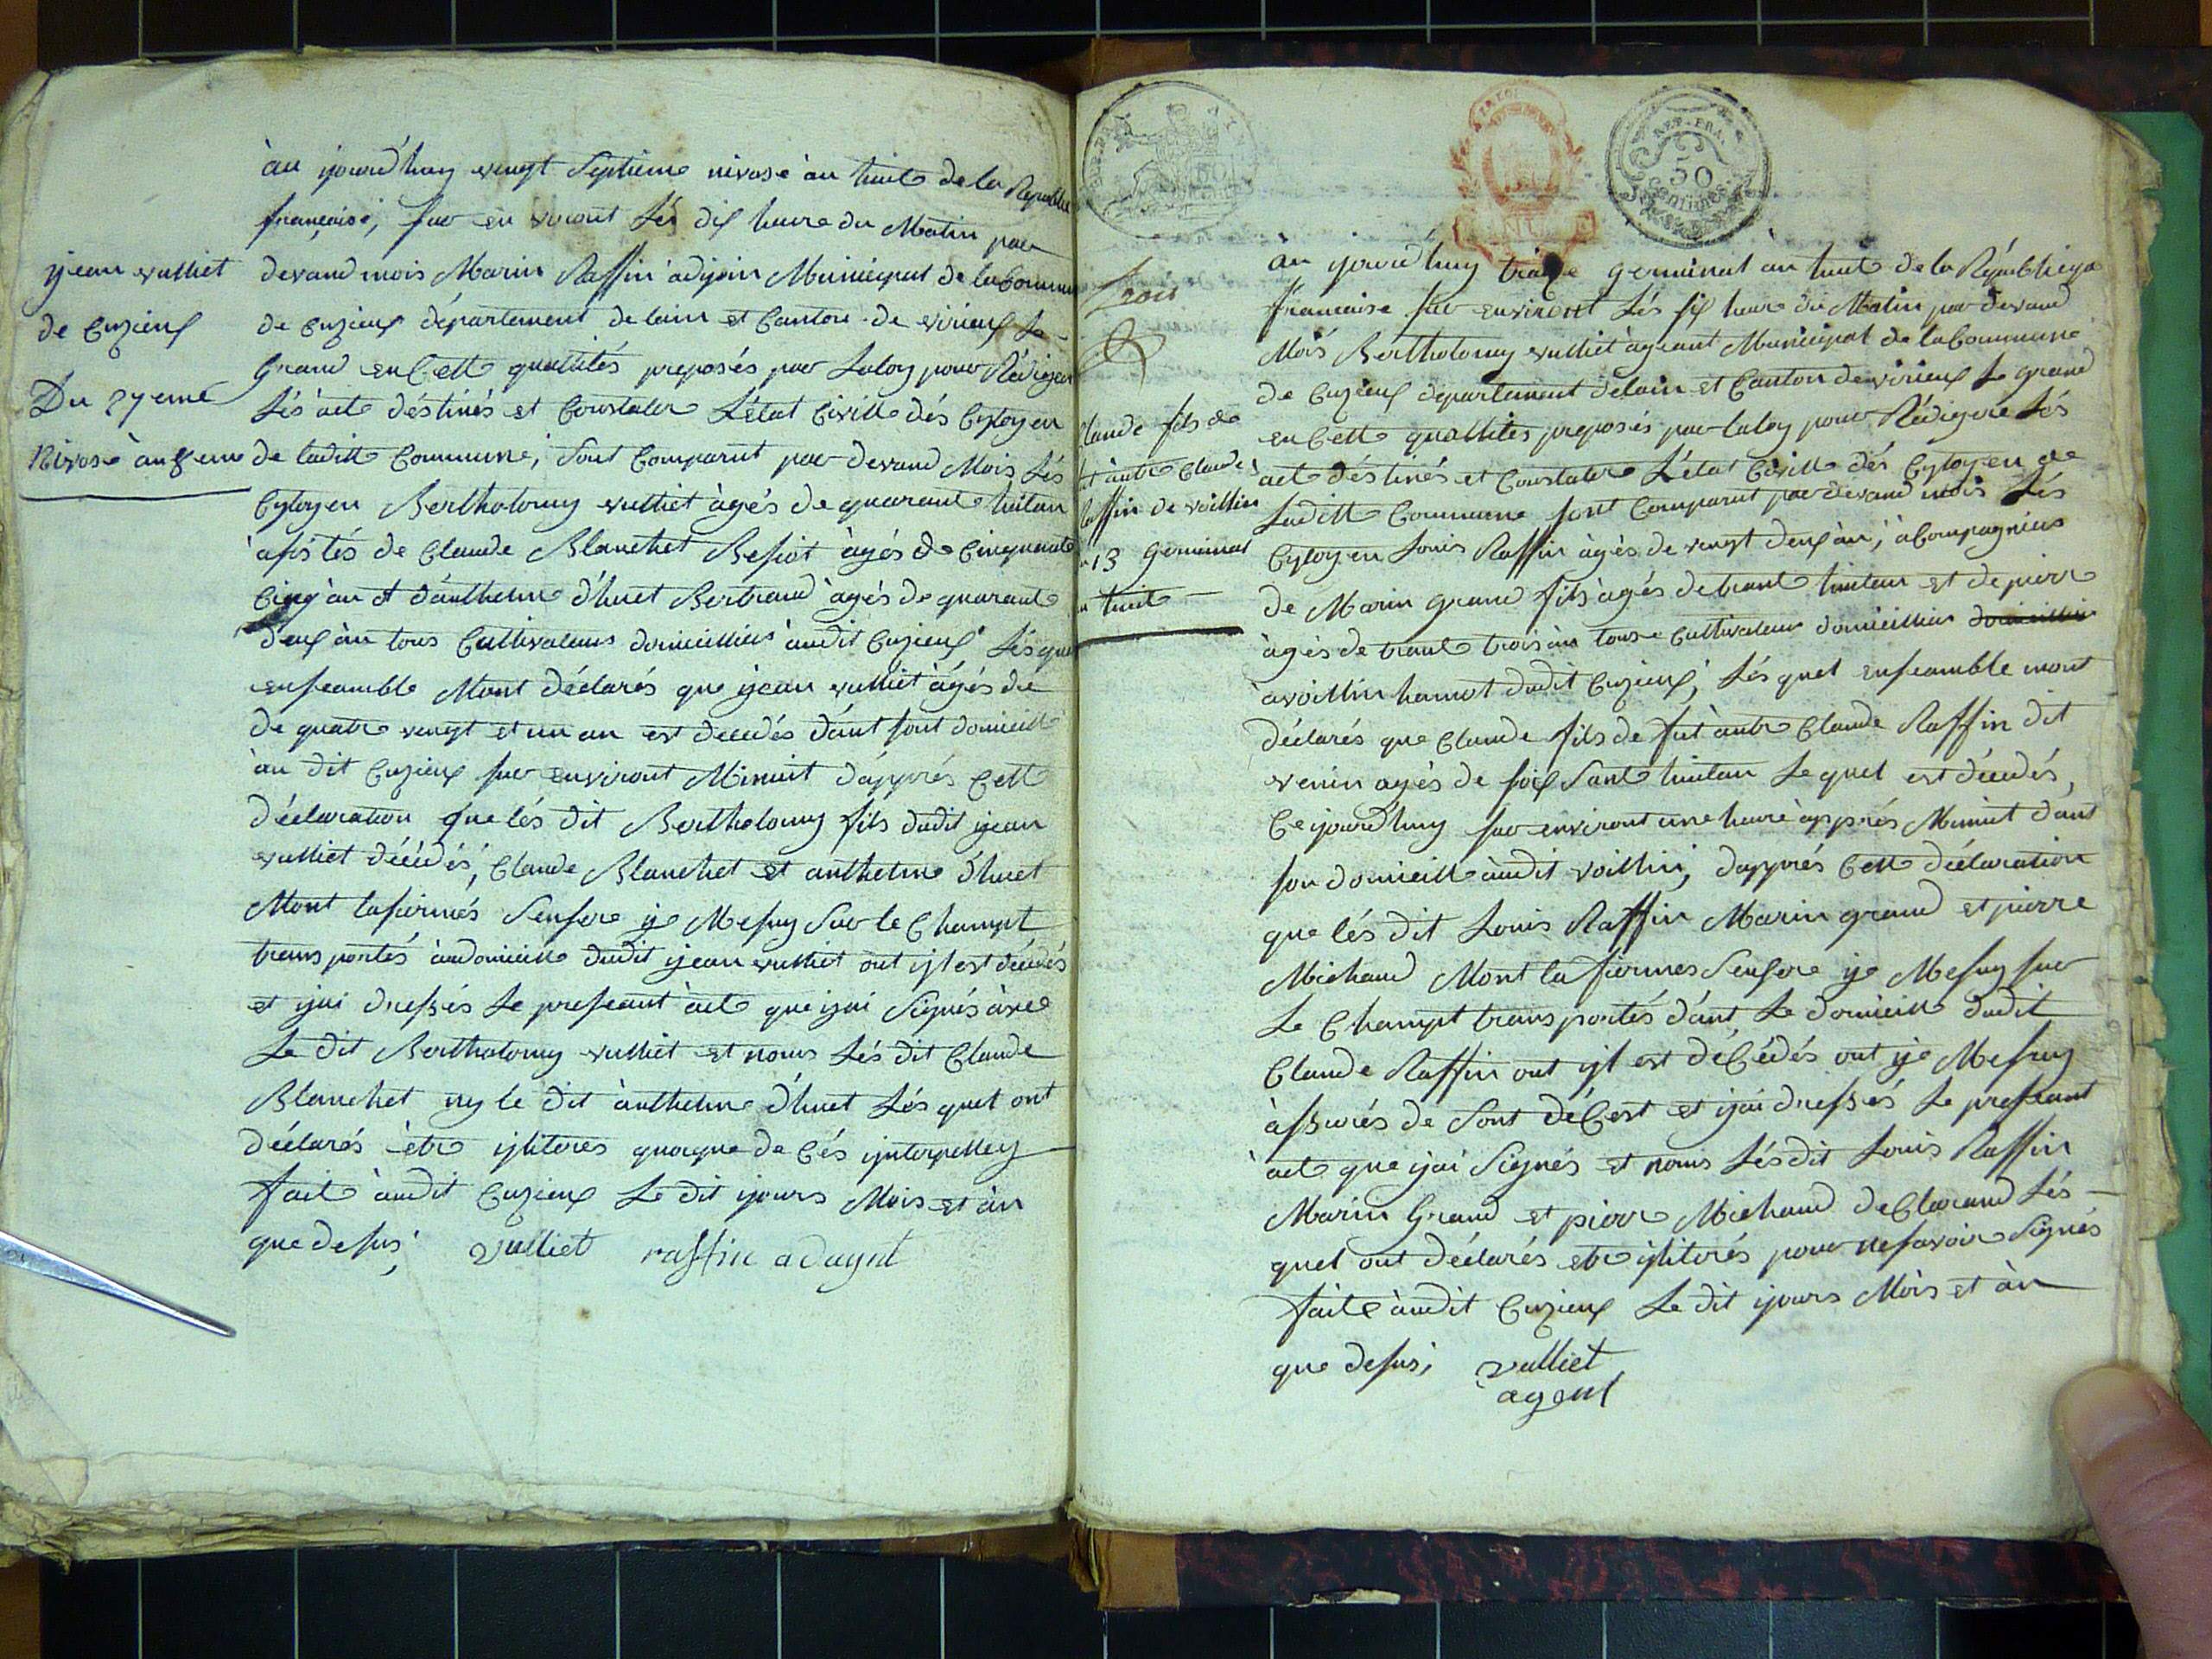 àu ijourd'huy vengt Septieme nivose àn huit de la Republi
francaise, sur en viront lés dix heure du Matin par
devand mois Marin Raffin adjoin Municipal de la Commun
de Cuzieux département de lain et Canton de virieux le
Grand en Cette quallités preposés par Laloy pour Rédiger
Lés acte déstinés et Constater L'état Civille dés Cytoyen
de laditte Commune, Sont Comparut par devand Mois Lés
Cytoyen Bertholomy vulliet àgés de quarante huitan
asistés de Claude Blanchet Besiot àgés de Cinquante
Cinq àn et d'anthelme d'huet Bertrand àgés de quarante
deux àn tous Cultivateurs domicilliés àudit Cuzieux Lésque
enseamble Mont déclarés que ijean vulliet àgés de
de quatre vengt et un an est décédés dant sont domicille
àu dit Cuzieux sur environt Minuit d'apprés Cette
déclaration que lés dit Bertholomy fils dudit ijean
vulliet décédés, Claude Blanchet et anthelme d'huet
Mont lafirmés Senfere ije Mesuy Sur le Champt
transportés àudomicille dudit ijean vulliet out ijl est décédés
et ijai dressés Le preseant àcte que ijai Signés àvec
Le dit Bertholomy vulliet et nous Lés dit Claude
Blanchet ny le dit anthelme d'huet Lés quel ont
déclarés ètre ijliteres quoique de Cés ijnterpelley
fait àudit Cuzieux Le dit ijours Mois et àn
que desus; vulliet raffin adagnt
ijean vulliet
de Cuzieux
Du 27eme
Nivose àn 8eme
REP. FRA.
50
Centimes
àu ijourd'huy traize Germinal àn huit de la Républiqe
francaise sur environt Lés six heure du Matin par devand
Mois Bertholomy vulliet àgeant Municipal de la Commune
de Cuzieux departement delain et Canton de virieux Le grand
en Cette quallites preposés par laloy pour Rédigere Lés
acte déstinés et Constater L'état Civille dés Cytoyen de
Laditte Commune sont Comparut par devand mois Lés
Cytoyen Louis Raffin àgés de vengt deux àn, àCompagnies
de Marin grand fils àgés de trante huitan et de pierre
àgés de trante trois àn tous Cultivateur domicillies domicillies
àvoillin hamot dudit Cuzieux, Lés quel enseamble mont
déclarés que Claude fils de fut àutre Claude Raffin dit
venin agés de soix Sante huitan Le quel est décédés,
Ceijourd'huy sur environt une heure àpprés Minuit dant
son domicille àudit voillin, dapprés Cette déclaration
que lés dit Louis Raffin Marin grand et pierre
Michaud Mont la firmes Senfere ije Mesuy sur
Le Champt transportés dànt Le domicille dudit
Claude Raffin out ijl est déCédés out ije Mesuy
àssurés de Sont déCest et ijai dressés Le preseant
àcte que ijai Signés et nous Lésdit Louis Raffin
Marin Grand et pierre Michaud deClarand Lés
quel ont déclarés etre ijliterés pour nesavoir Signés
fait àudit Cuzieux Le dit ijours Mois et àn
que desus; vulliet
agent
Trois
laude fils de
ut àutre Claudes
affin de voillin
13 Germinal
huit